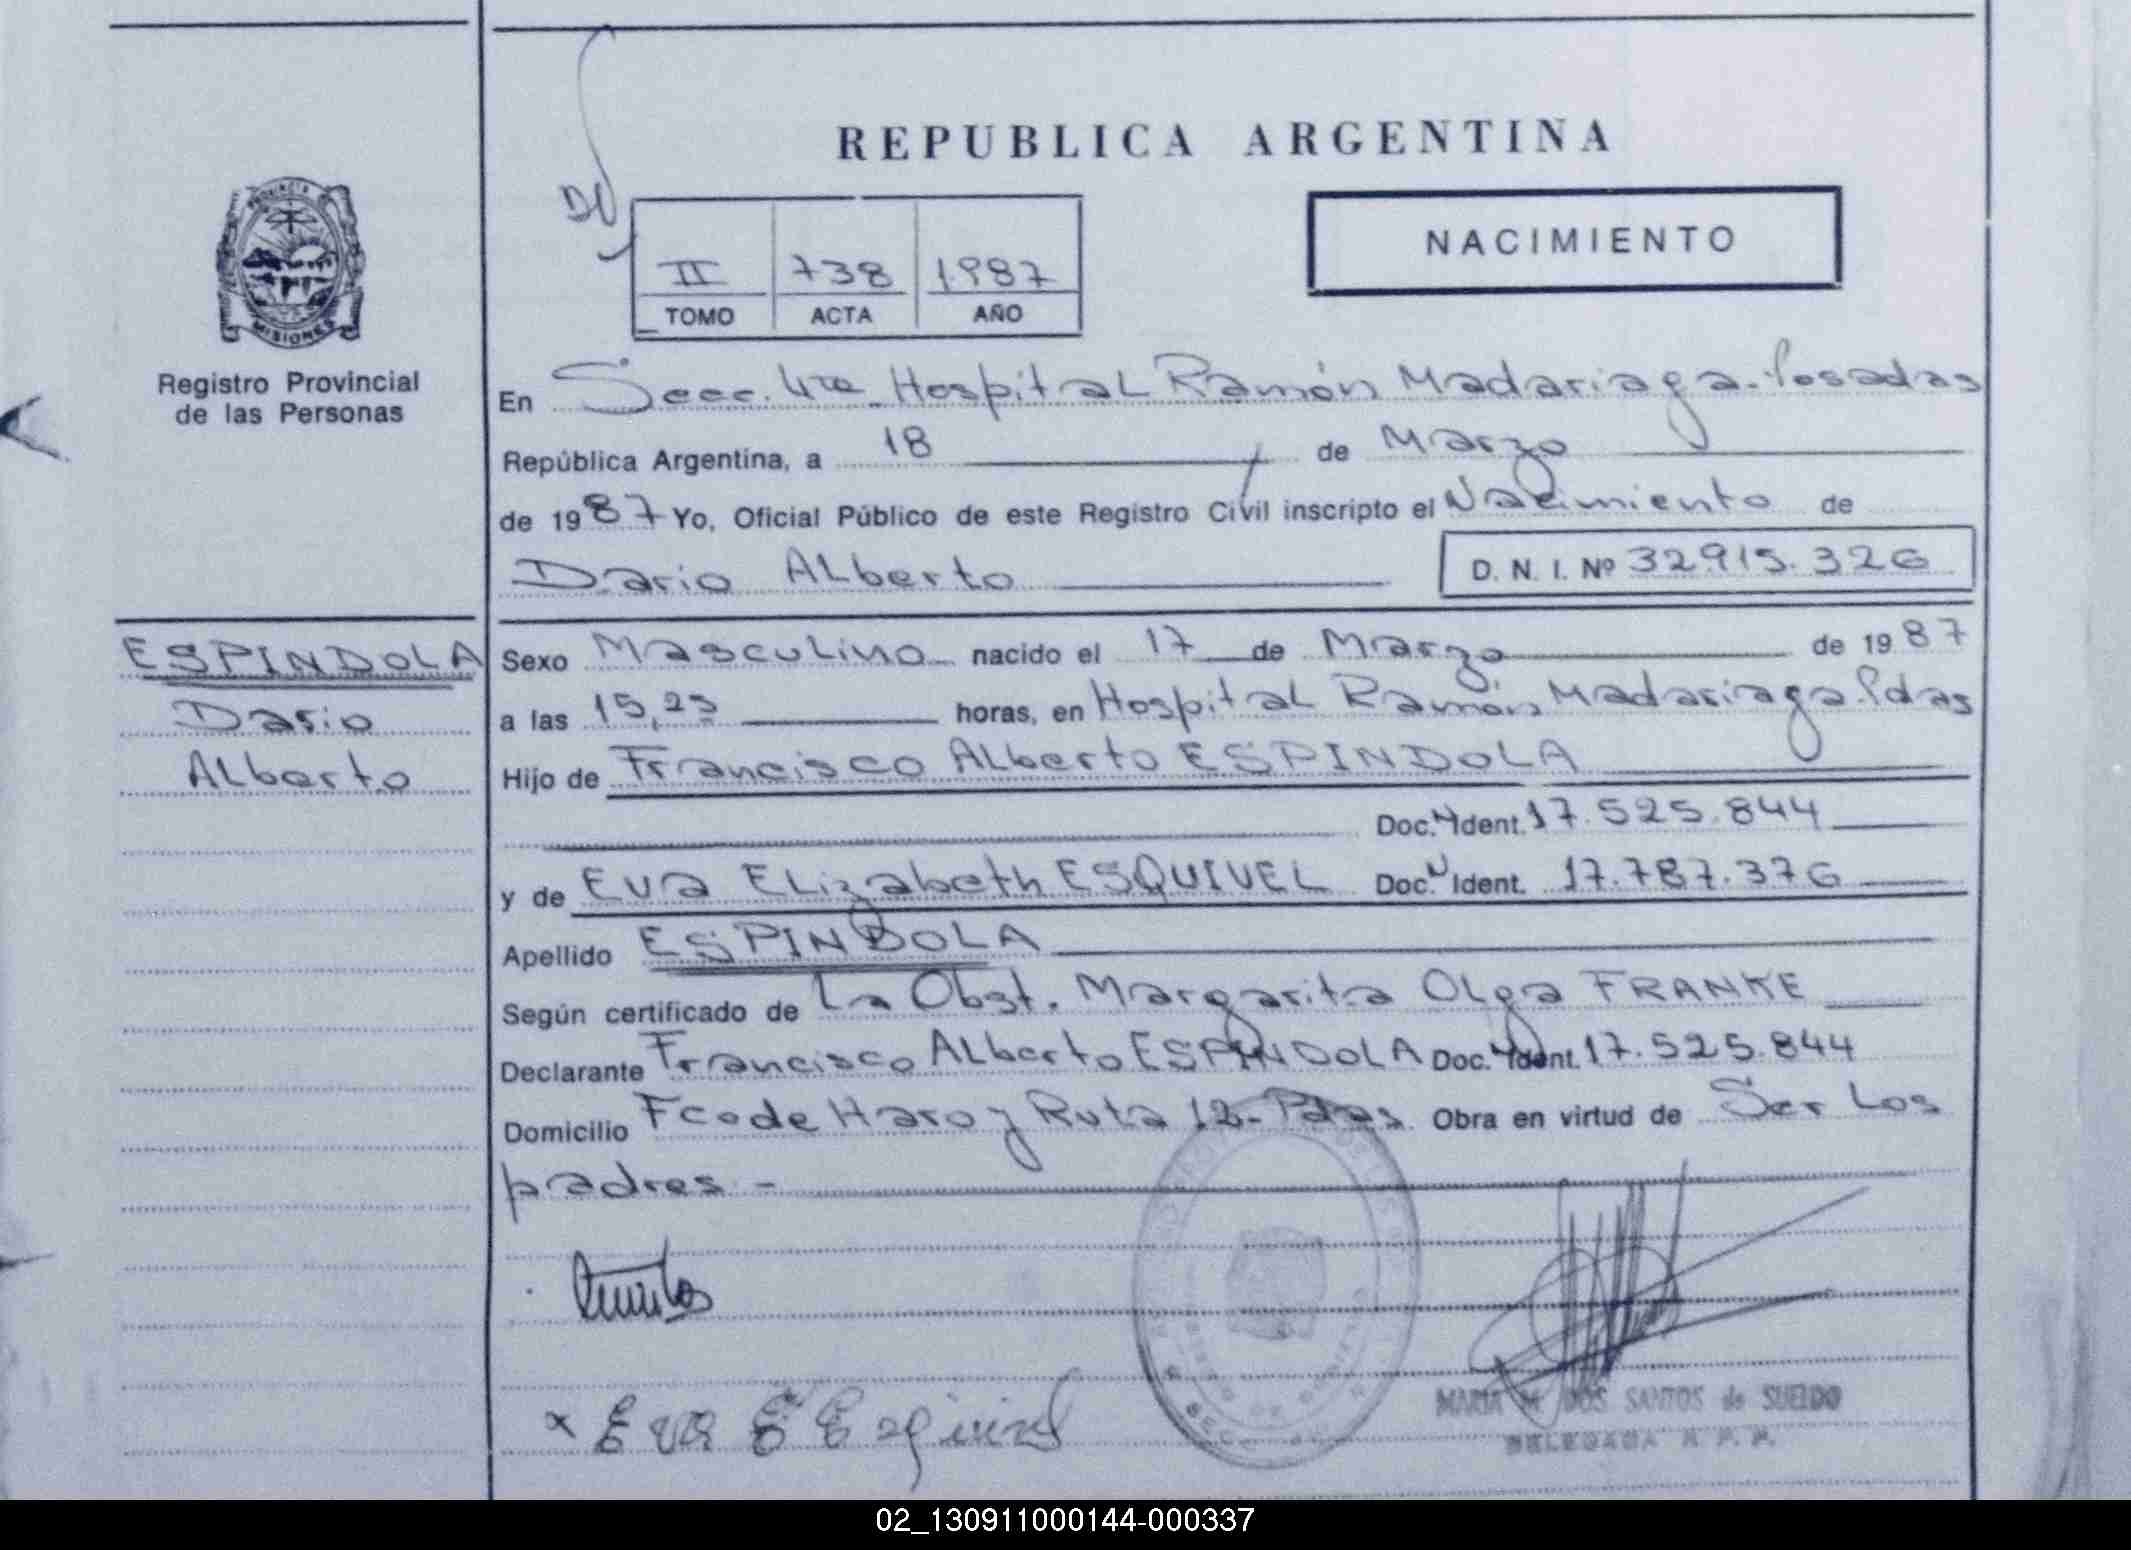 REPUBLICA ARGENTINA
NACIMIENTO
II 738 1987
TOMO ACTA AÑO
PROVINCIA
MISIONES
Registro Provincial
de las Personas
En Secc. 4ta. Hospital Ramón Madariaga-Posadas
República Argentina, a 18 de Marzo
de 1987 Yo, Oficial Público de este Registro Civil inscripto el Nacimiento de
Dario Alberto D. N. I. Nº 32915.326
ESPINDOLA
Dario
Alberto
Sexo Masculino nacido el 17 de Marzo de 1987
a las 15,25 horas, en Hospital Ramón Madariaga. Pdas
Hijo de Francisco Alberto ESPINDOLA
Doc. Ident. 17.525.844
y de Eva Elizabeth ESQUIVEL Doc. Ident. 17.787.376
Apellido ESPINDOLA
Según certificado de La Obst. Margarita Olga FRANKE
Declarante Francisco Alberto ESPINDOLA Doc. Ident. 17.525.844
Domicilio Fco de Haro y Ruta 12-Pdas. Obra en virtud de Ser Los
padres -
x Eva E Esquivel
MARIA M. DOS SANTOS de SUELDO
DELEGADA R. P. P.
02_130911000144-000337